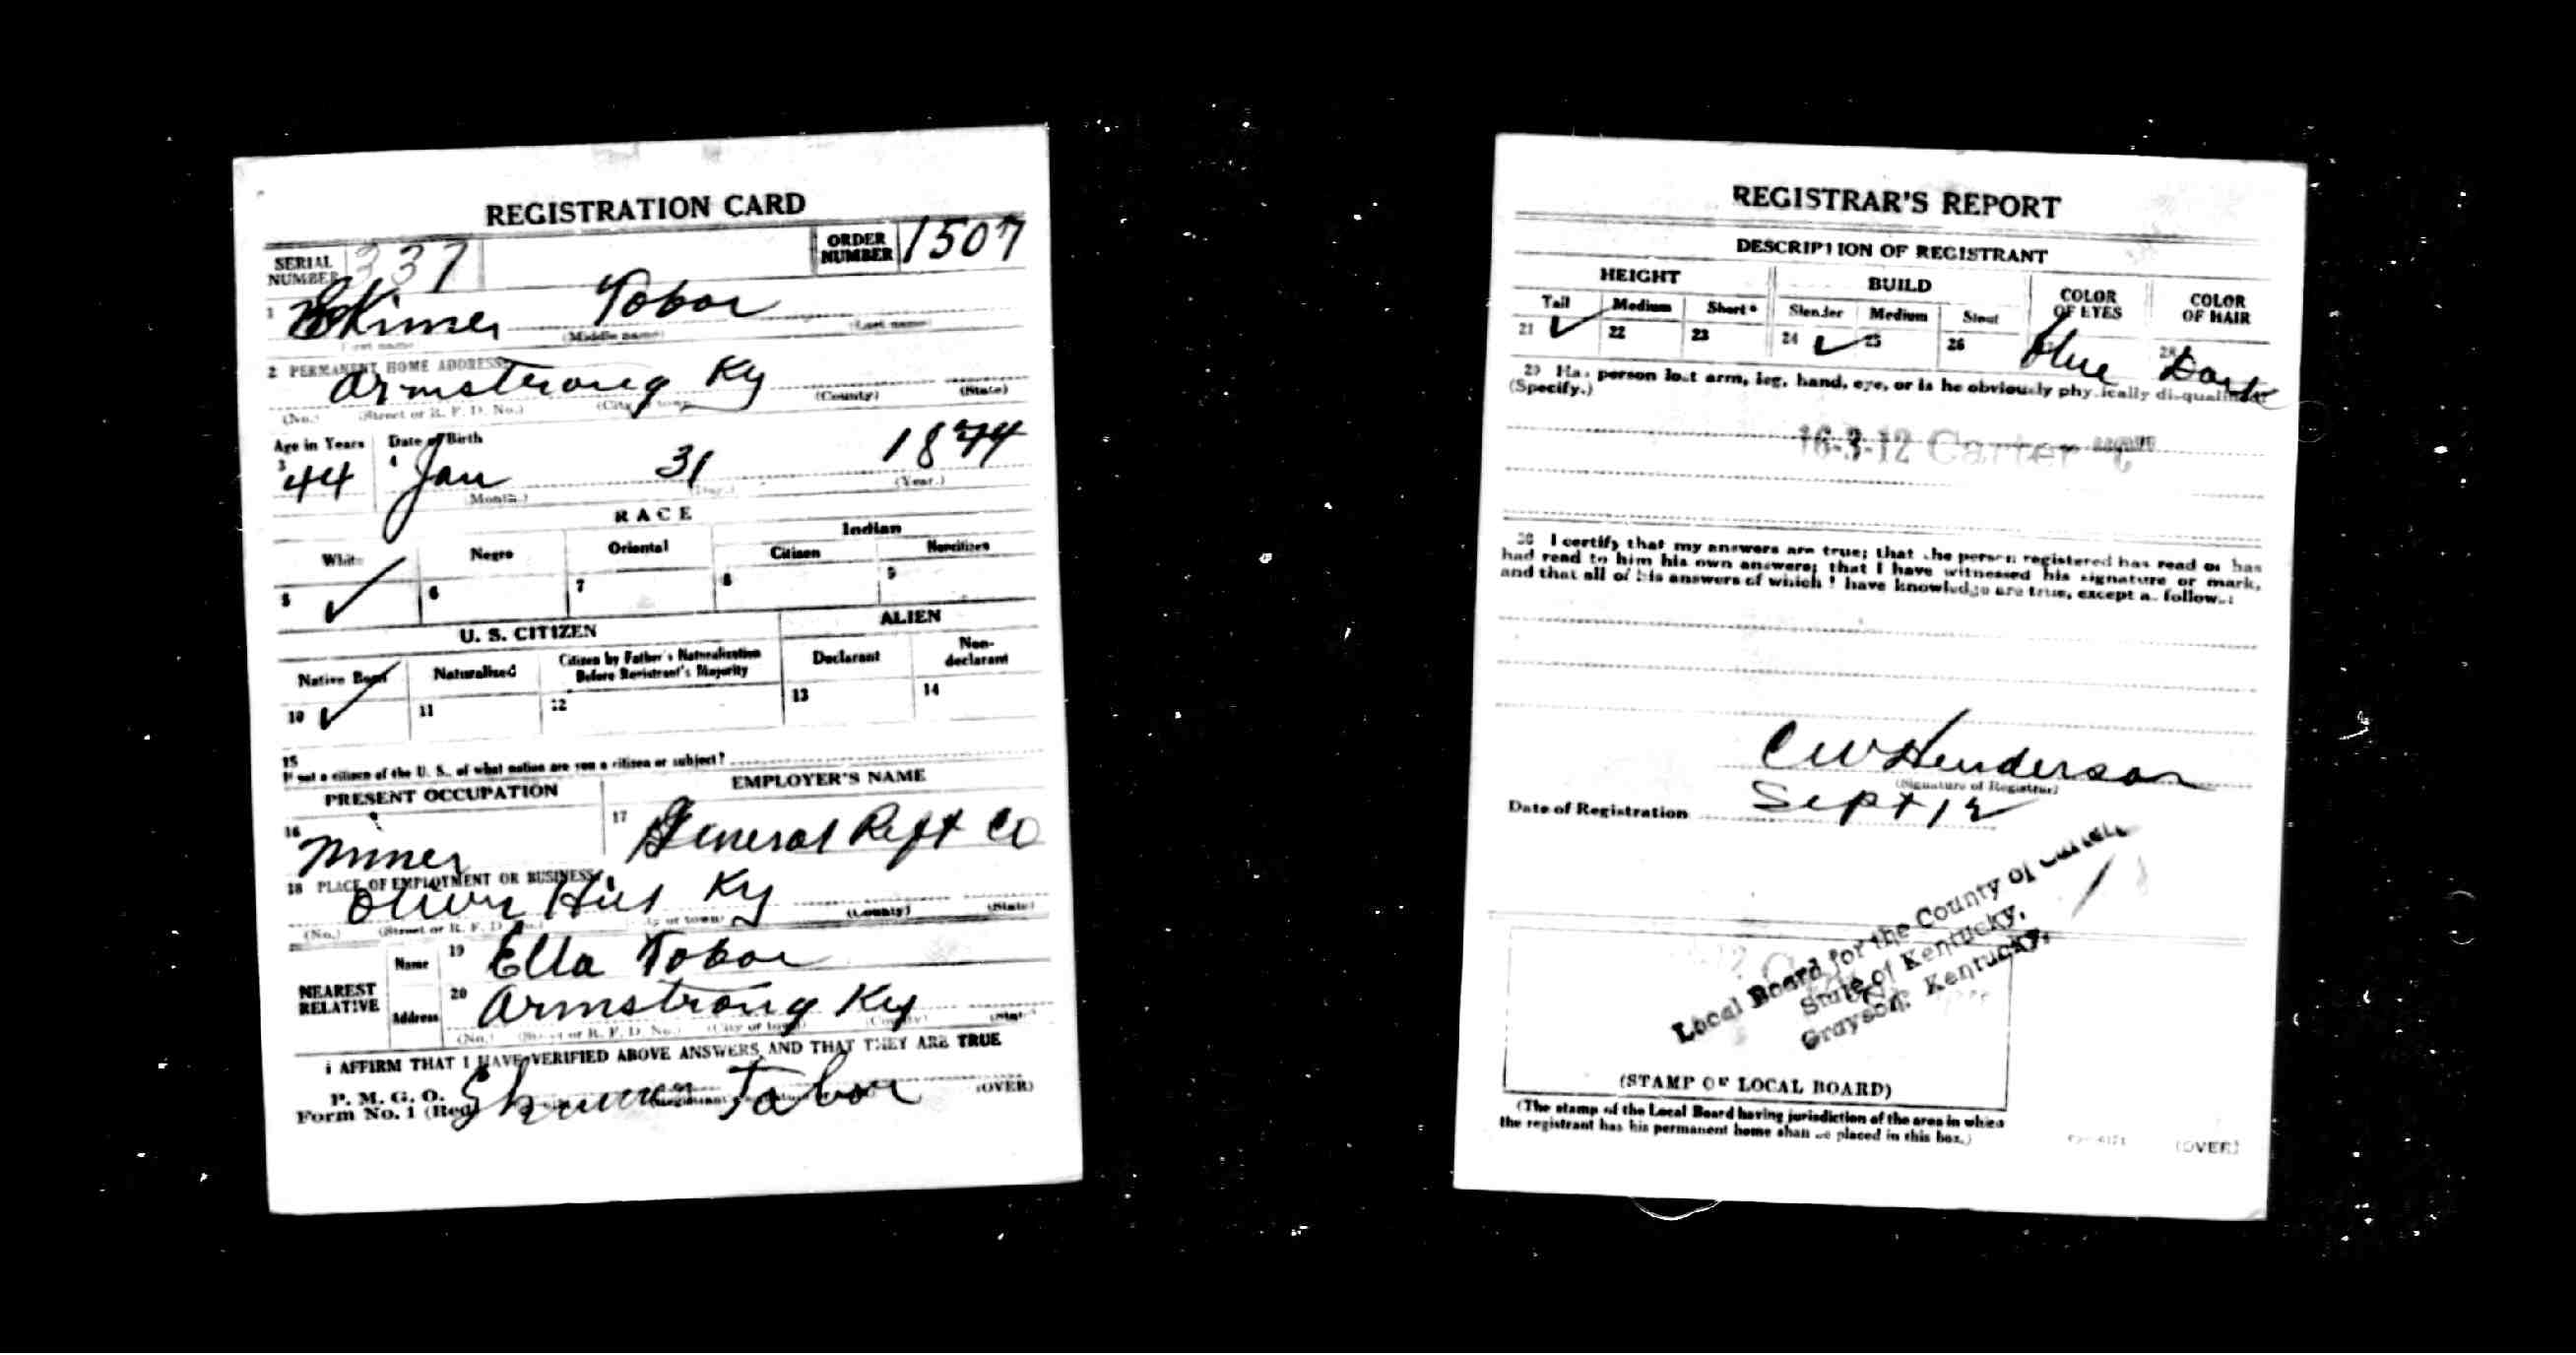 REGISTRATION CARD
SERIAL NUMBER 337 ORDER NUMBER 1507
1 Skinner Tobor
(First name) (Middle name) (Last name)
2 PERMANENT HOME ADDRESS
Armstrong Ky
(No.) (Street or R. F. D. No.) (City or town) (County) (State)
Age in Years Date of Birth
3 44 4 Jan 31 1874
(Month.) (Day.) (Year.)
RACE
White Negro Oriental Indian
Citizen Noncitizen
5 ✓ 6 7 8 9
U. S. CITIZEN ALIEN
Native Born Naturalized Citizen by Father's Naturalization Before Registrant's Majority Declarant Non-declarant
10 ✓ 11 12 13 14
15
If not a citizen of the U. S., of what nation are you a citizen or subject?
PRESENT OCCUPATION EMPLOYER'S NAME
16 Miner 17 General Reft Co
18 PLACE OF EMPLOYMENT OR BUSINESS
Olive Hill Ky
(No.) (Street or R. F. D. No.) (City or town) (County) (State)
NEAREST RELATIVE
Name 19 Ella Tobor
Address 20 Armstrong Ky
(No.) (Street or R. F. D. No.) (City or town) (County) (State)
I AFFIRM THAT I HAVE VERIFIED ABOVE ANSWERS AND THAT THEY ARE TRUE
P. M. G. O.
Form No. 1 (Red) Tabor (OVER)
REGISTRAR'S REPORT
DESCRIPTION OF REGISTRANT
HEIGHT BUILD COLOR OF EYES COLOR OF HAIR
Tall Medium Short Slender Medium Stout
21 ✓ 22 23 24 ✓ 25 26 blue 28 Dark
29 Has person lost arm, leg, hand, eye, or is he obviously physically disqualified?
(Specify.)
16-3-12 Carter C
30 I certify that my answers are true; that the person registered has read or has
had read to him his own answers; that I have witnessed his signature or mark,
and that all of his answers of which I have knowledge are true, except as follows:
C W Henderson
(Signature of Registrar)
Date of Registration Sept 12
Local Board for the County of Carter,
State of Kentucky,
Grayson, Kentucky.
(STAMP OF LOCAL BOARD)
(The stamp of the Local Board having jurisdiction of the area in which
the registrant has his permanent home shall be placed in this box.)
(OVER)